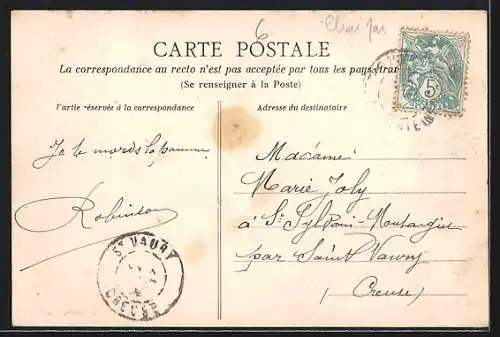 6
CARTE POSTALE
La correspondance au recto n'est pas acceptée par tous les pays étran
(Se renseigner à la Poste)
Partie réservée à la correspondance
Adresse du destinataire
5
Je te mords la pomme
Robinson
Madame
Marie Joly
à St Sylvain-Montaigut
par Saint Vaury
(Creuse)
ST VAURY
CREUSE